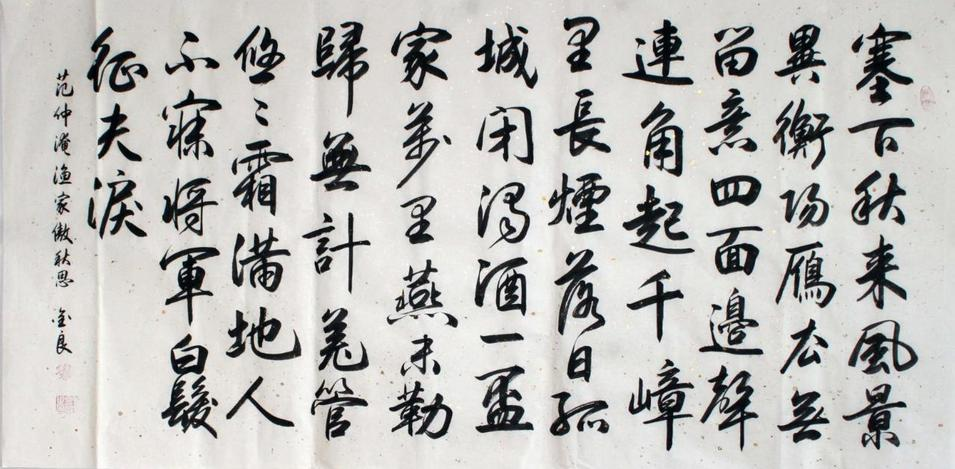 塞下秋来風景
異衡陽雁去無
留意四面邊聲
連角起千嶂
里長煙落日孤
城閉濁酒一盃
家萬里燕未勒
歸無計羌管
悠〻霜滿地人
不寐將軍白髮
征夫淚
范仲淹漁家傲秋思 金良